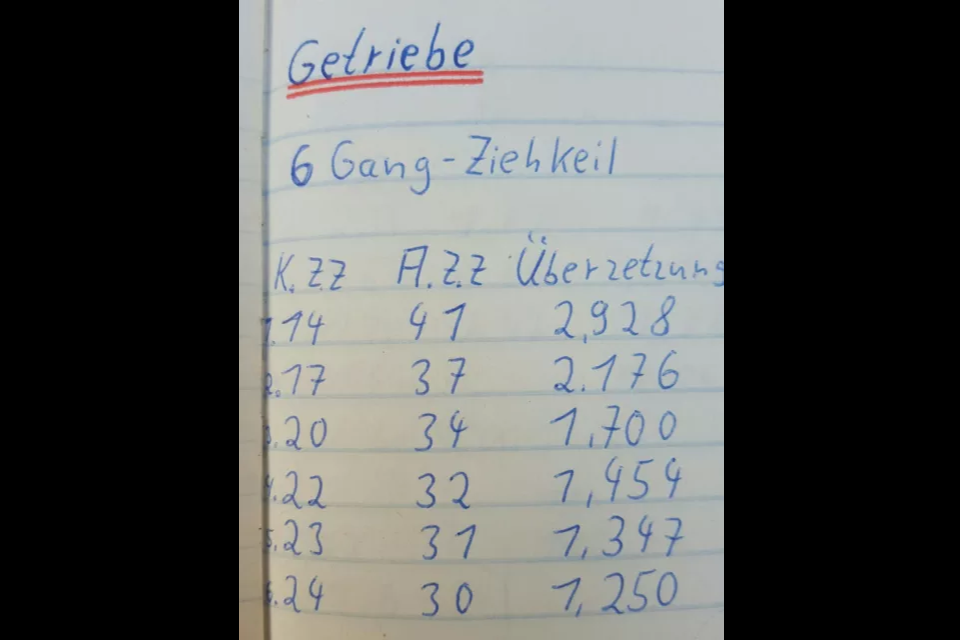 Getriebe
6 Gang-Ziehkeil
K.Z.Z A.Z.Z Überzetzung
1.14 41 2,928
2.17 37 2.176
3.20 34 1,700
4.22 32 1,454
5.23 31 1,347
6.24 30 1,250